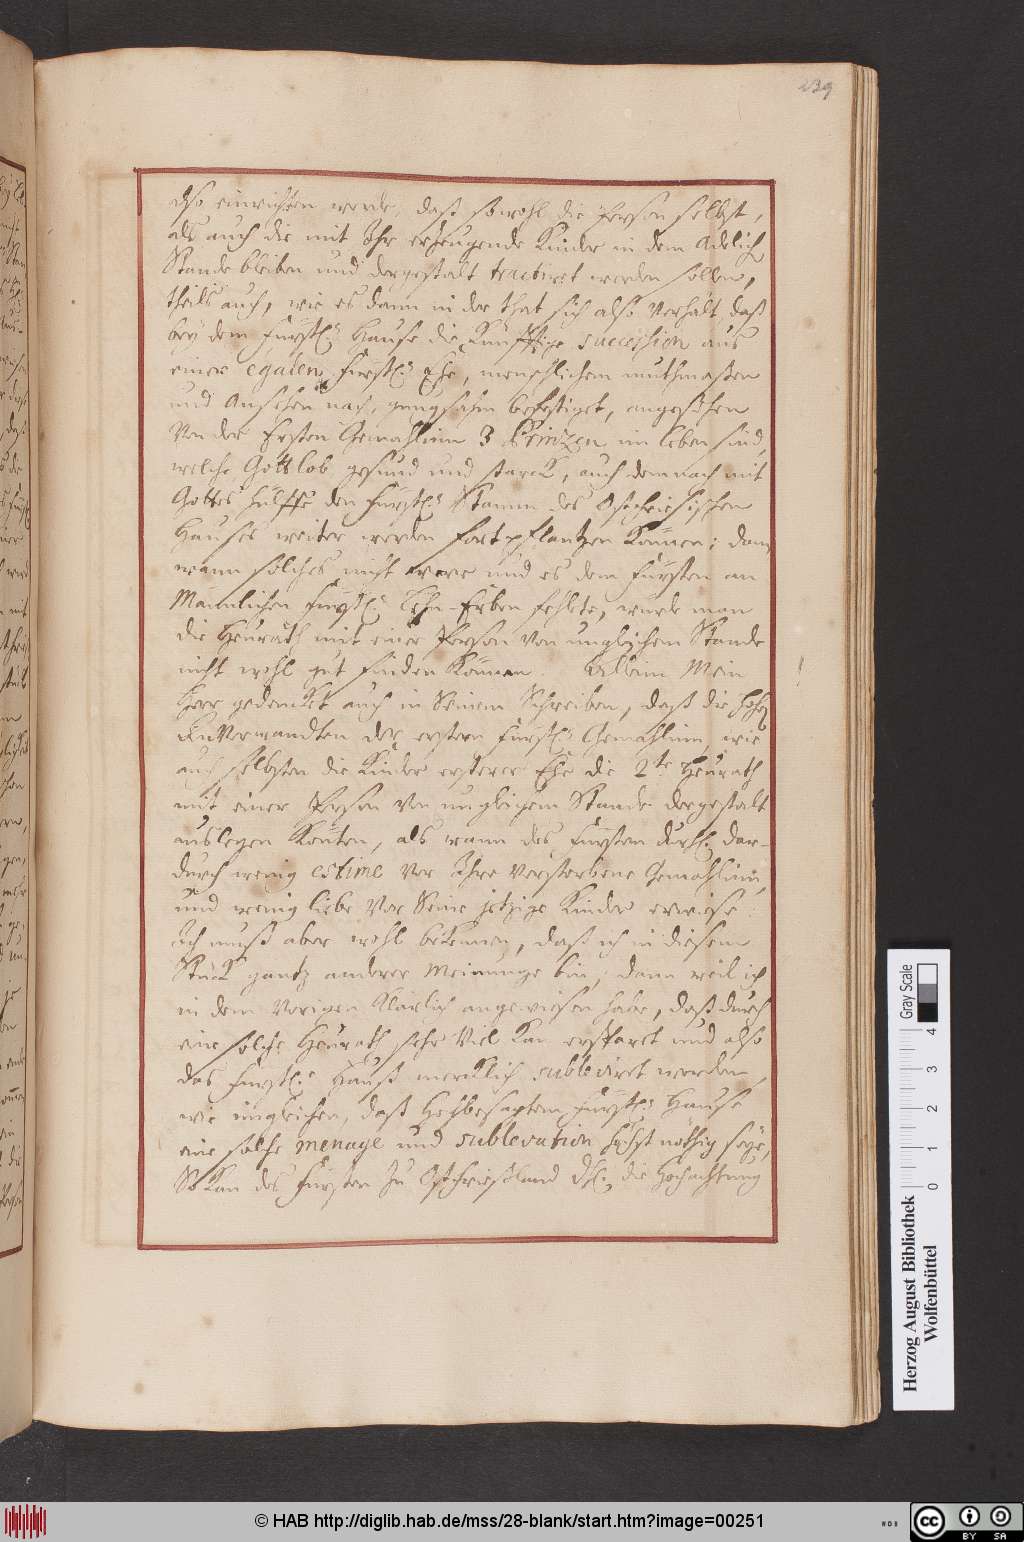 239
also einrichten werde, daß sowohl die Person selbst,
als auch die mit Ihr erzeugende Kinder in dem Adelich
Stande bleiben und dergestalt tractiret werden sollen,
theils auch, wie es dann in der that sich also verhält, daß
bey dem Fürstl. Hause die Künfftige succession aus
einer egalen Fürstl. Ehe, menschlichem muthmaßen
und Ansehen nach, gnugsahm befestiget, angesehen
von der Ersten Gemahlinn 3 Printzen im leben sind,
welche Gottlob gesund und starck, auch demnach mit
Gottes hülffe den Fürstl. Stamm des Ostfriesischen
Hauses weiter werden fortpflantzen Können; dann
wann solches nicht were und es dem Fürsten an
Männlichen Fürstl. Lehn-Erben fehlete, würde man
die Heurath mit einer Person von ungleichem Stande
nicht wohl gut finden Können. Allein Mein
Herr gedencket auch in Seinem Schreiben, daß die hohe
Anverwandten der erstern Fürstl. Gemahlinn, wie
auch selbsten die Kinder ersterer Ehe die 2te Heurath
mit einer Person von ungleigem Stande dergestalt
auslegen Könten, als wann des Fürsten Durchl. dar-
durch wenig estime vor Ihre verstorbene Gemahlinn,
und wenig liebe vor Seine jetzige Kinder erwiese.
Ich muß aber wohl bekennen, daß ich in diesem
Stück gantz anderer Meinunge bin, dann weil ich
in dem Vorigen Klärlich angewiesen habe, daß durch
eine solche Heurath sehr viel Kan ersparet und also
das Fürstl. Hauß mercklich subleviret werden,
wie ingleichen, daß Hochbesagtem Fürstl. Hause
eine solche menage und sublevation höchst nöthig seye,
So Kan des Fürsten zu Ostfriesland Dhl. die Hochachtung
Herzog August Bibliothek
Wolfenbüttel
Gray Scale
0 1 2 3 4
© HAB http://diglib.hab.de/mss/28-blank/start.htm?image=00251
WDB
cc BY SA